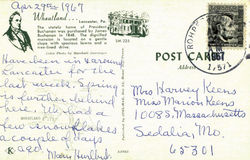 Apr 29th 1967
Wheatland...
Lancaster, Pa.
The stately home of President
Buchanan was purchased by James
Buchanan in 1848. The dignified
mansion is located on a gentle
slope with spacious lawns and a
tree-lined drive.
POST CARD
Have been in
Lancaster for the
last week. Spring
is further behind
here. We had a
few snow flakes
a couple days
ago.
Mary
Mrs Harvey Keens
Mrs Marion Keens
1008 S. Massachusetts
Sedalia, Mo.
65301